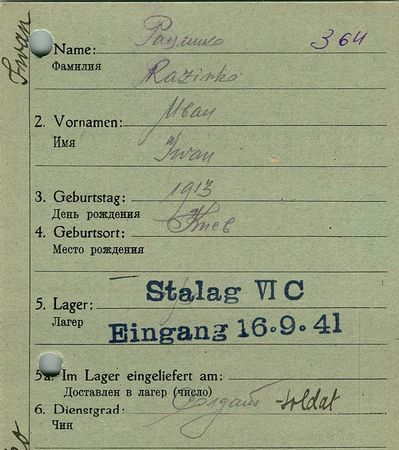 Iwan
364
Name: Разинко
Фамилия Razinko
2. Vornamen: Иван
Имя Iwan
3. Geburtstag: 1913
День рождения
4. Geburtsort: Киев
Место рождения
5. Lager: Stalag VI C
Лагер Eingang 16.9.41
5a. Im Lager eingeliefert am:
Доставлен в лагер (число)
6. Dienstgrad: Солдат - soldat
Чин